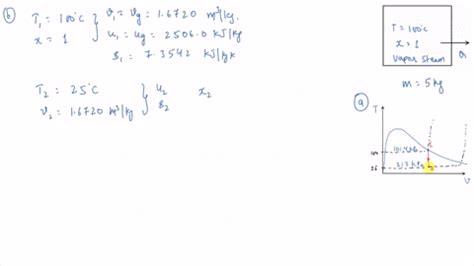 (b)
T₁ = 100°C
x = 1
v₁ = vg = 1.6720 m³/kg
u₁ = ug = 2506.0 kJ/kg
s₁ = 7.3542 kJ/kgk
T₂ = 25°C
v₂ = 1.6720 m³/kg
u₂
s₂
x₂
T = 100°C
x = 1
Vapor Steam
Q
m = 5 kg
(a)
T
100
25
V